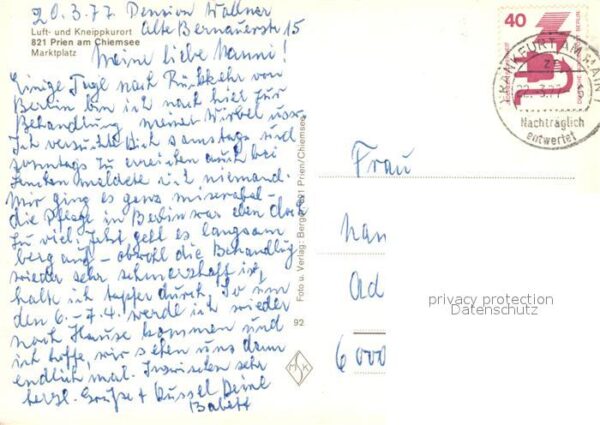 20.3.77 Pension Wallner
Alte Bernauerstr 15
Luft- und Kneippkurort
821 Prien am Chiemsee
Marktplatz
Meine liebe Nanni!
Einige Tage nach Rückkehr von
Berlin kam ich nach hier zur
Behandlung meiner Wirbel usw.
Ich versuchte Dich samstags und
sonntags zu erreichen auch bei
meldete sich niemand.
Mir ging es ganz miserabel -
die Pflege in Berlin war eben doch
zu viel. Jetzt geht es langsam
berg auf - obwohl die Behandlung
wieder sehr schmerzhaft ist,
halte ich tapfer durch. So um
den 6.-7.4. werde ich wieder
nach Hause kommen und
ich hoffe, wir sehen uns dann
endlich mal. Inzwischen sehr
herzl. Grüße + Bussel Deine
Babett
Foto u. Verlag: Berger, 821 Prien/Chiemsee
92
40
DEUTSCHE BUNDESPOST BERLIN
FRANKFURT AM MAIN 1
22.-3.77
Nachträglich
entwertet
Frau
Nan
Ad
6000
privacy protection
Datenschutz